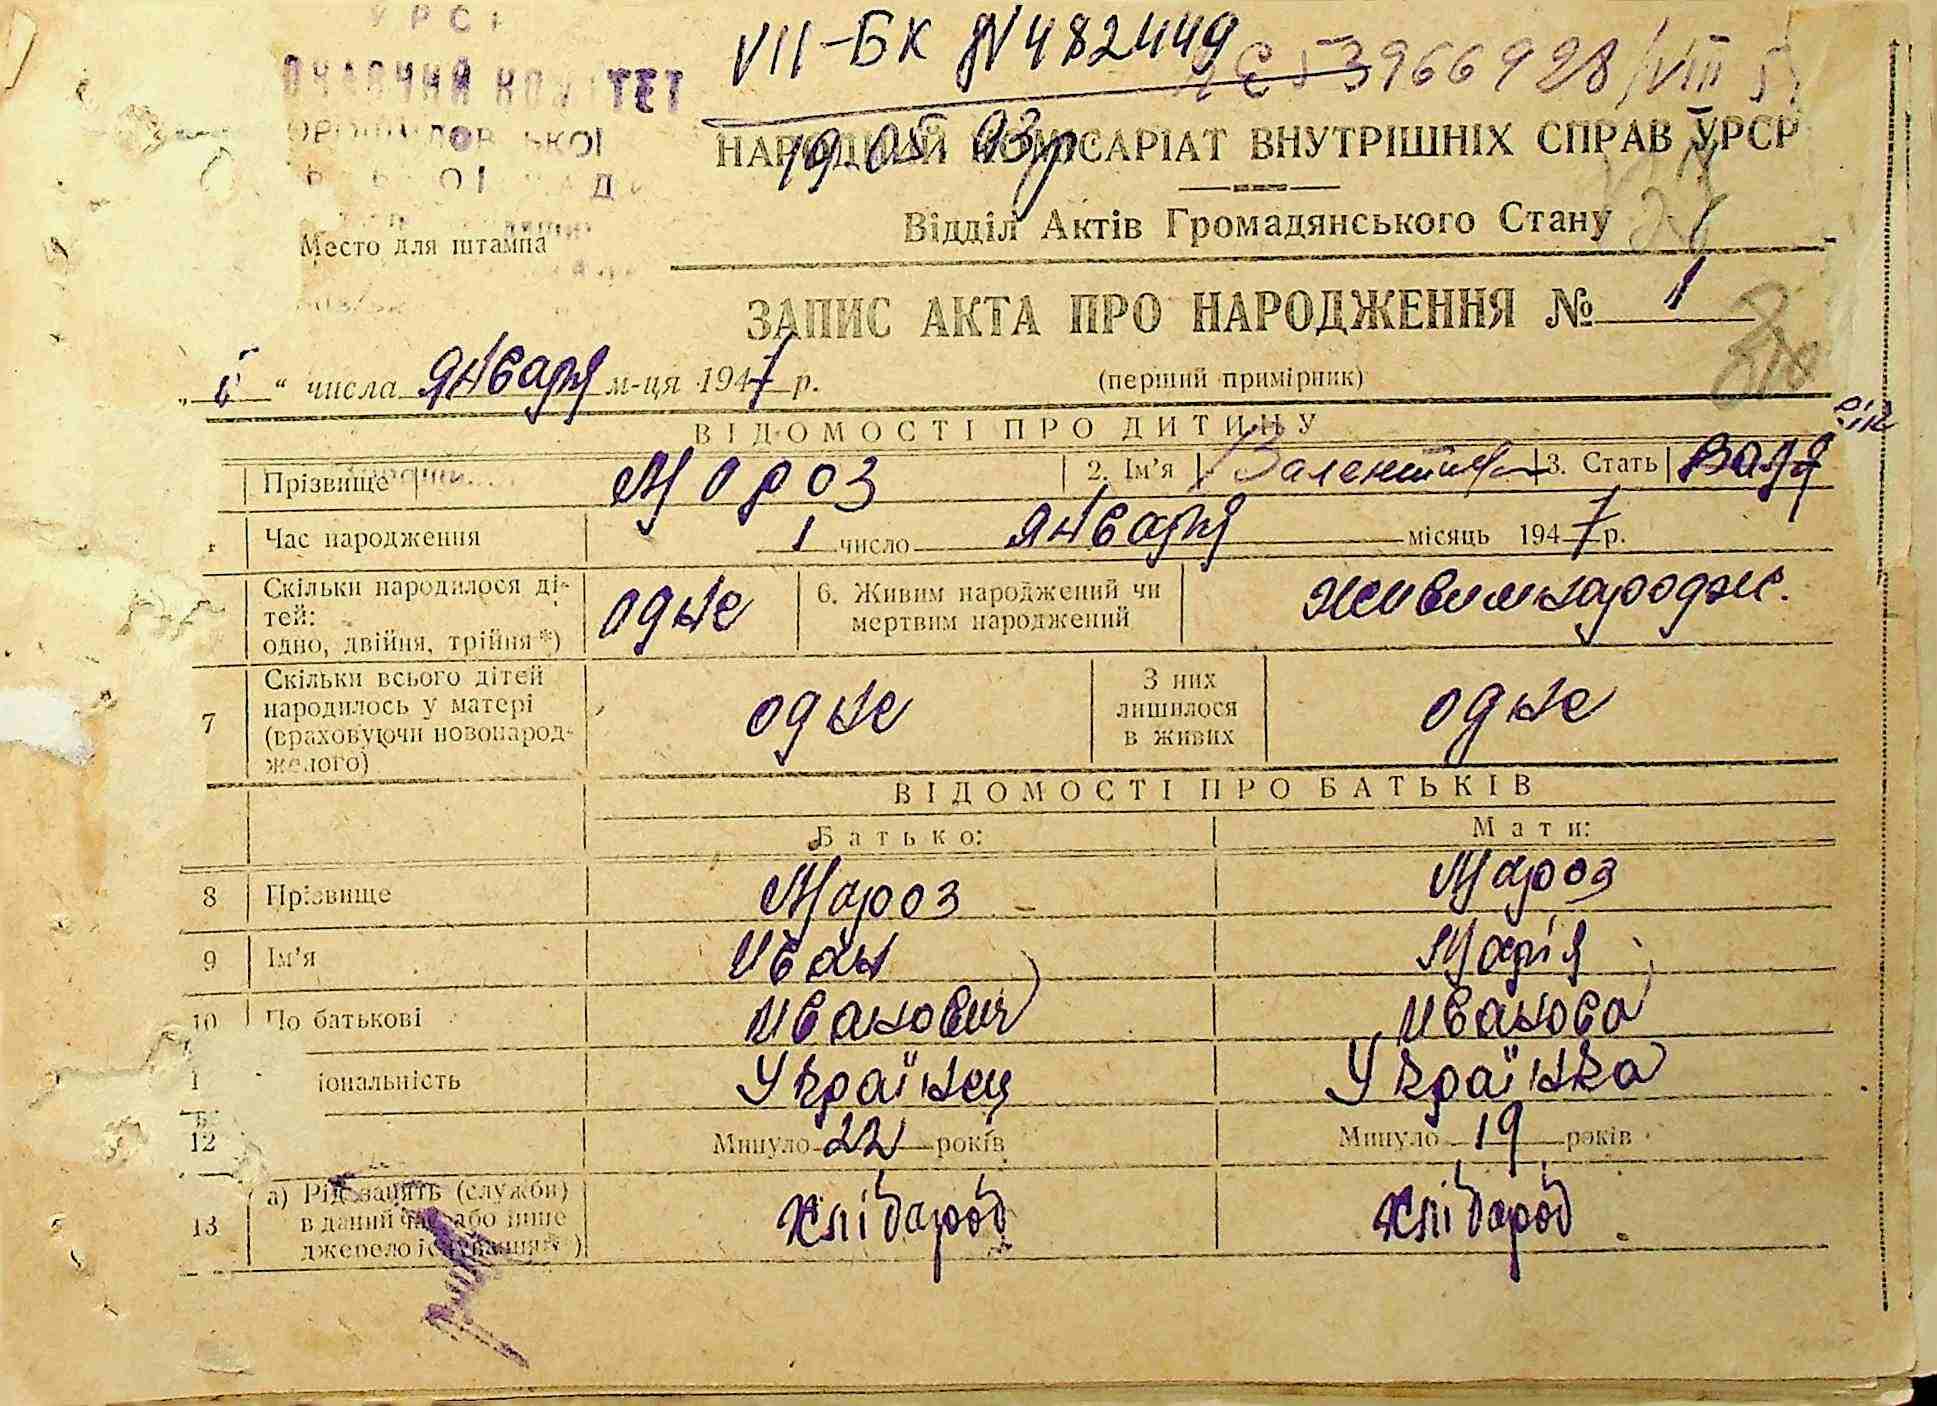 УРСР
VII-БК №482449
3966928/VIII
19.05.93р.
НАРОДНИЙ КОМІСАРІАТ ВНУТРІШНІХ СПРАВ УРСР
Відділ Актів Громадянського Стану
Место для штампа
ЗАПИС АКТА ПРО НАРОДЖЕННЯ № 1
числа января м-ця 1947 р. (перший примірник)
ВІДОМОСТІ ПРО ДИТИНУ
Прізвище Мороз 2. Ім'я Валентина 3. Стать Валя
Час народження 1 число января місяць 1947 р.
Скільки народилося дітей: одно, двійня, трійня*) одне 6. Живим народжений чи мертвим народжений живим народж.
7 Скільки всього дітей народилось у матері (враховуючи новонародженого) одне З них лишилося в живих одне
ВІДОМОСТІ ПРО БАТЬКІВ
Батько: Мати:
8 Прізвище Мороз Мороз
9 Ім'я Иван Марія
10 По батькові Иванович Иванова
іональність Українец Українка
12 Минуло 22 років Минуло 19 років
13 а) Рід занять (служби) в даний час або інше джерело існування*) хлібароб хлібароб